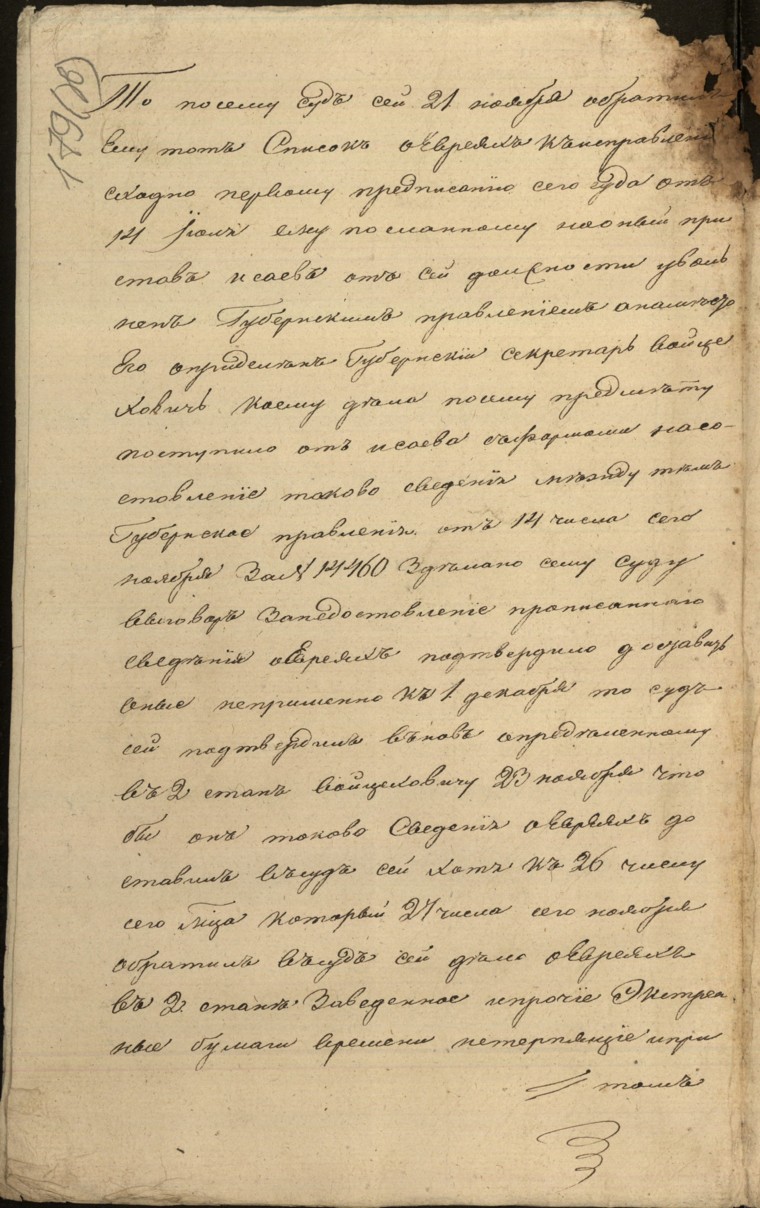 179(об)
То посему Судъ сей 21 ноября обратилъ
Ему тотъ Списокъ оЕвреяхъ къисправлению
сходно первому предписанию сего Суда отъ
14 Июля ему посланному наоный при
ставъ исаевъ отъ сей должности уволь
ненъ Губернскимъ правлениемъ анаместо
Его определенъ Губернский секретарь Войце
ховичь коему дела посему предмѣту
поступило отъ исаева съформами насо-
ставление таково сведения между тѣмъ
Губернское правления отъ 14 числа сего
ноября За № 14460 Зделано сему Суду
выговоръ Занедоставление прописанного
сведѣния оЕвреяхъ подтвердило доставить
оные непременно къ 1 декабря то судъ
сей подтвердилъ вновь определенному
въ 2 станъ Войцеховичу 23 ноября что
бы онъ таково Сведения оЕвреяхъ до
ставилъ въсудъ сей хотя къ 26 числу
сего Мца который 27 числа сего ноября
обратилъ въсудъ сей дѣло оЕвреяхъ
въ 2 станѣ Заведенное ипрочие Экстрен
ные бумаги времени нетерпящие ипри
// томъ